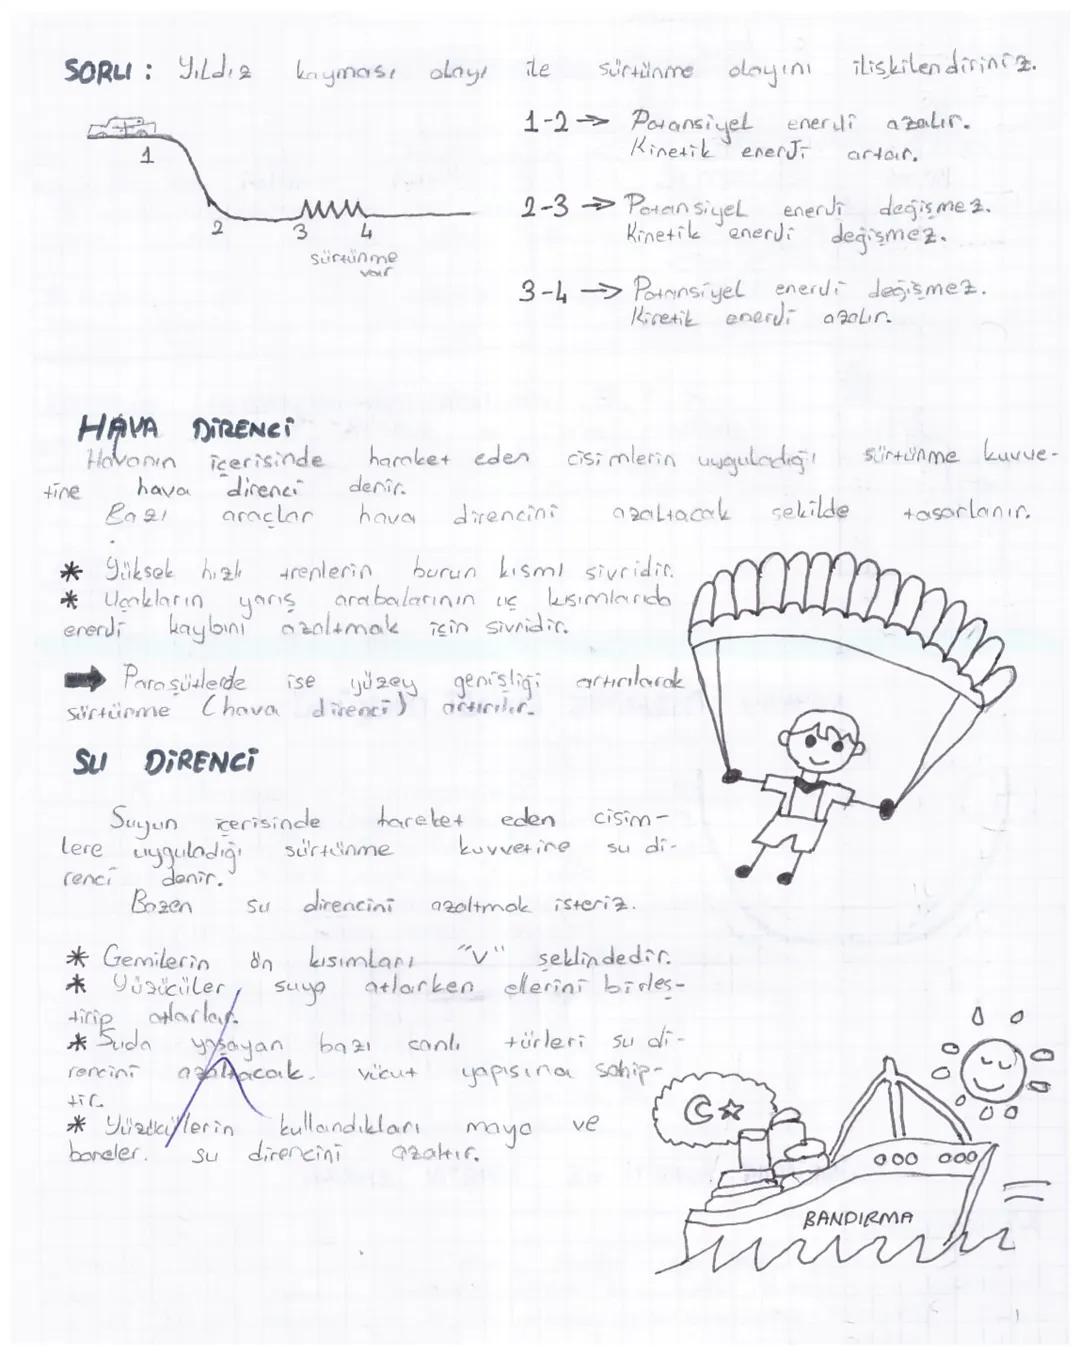 SORU : Yıldız kayması olayı ile sürtünme olayını ilişkilendiriniz.
1-2 → Potansiyel enerji azalır.
Kinetik enerji artar.
1
2-3 → Potansiyel enerji değişmez.
Kinetik enerji değişmez.
2 3 4
sürtünme
var
3-4 → Potansiyel enerji değişmez.
Kinetik enerji azalır.
HAVA DİRENCİ
Havanın içerisinde hareket eden cisimlerin uyguladığı sürtünme kuvve-
tine hava direnci denir.
Bazı araçlar hava direncini azaltacak şekilde tasarlanır.
* Yüksek hızlı trenlerin burun kısmı sivridir.
* Uçakların yarış arabalarının uç kısımlarıda
enerji kaybını azaltmak için sivridir.
➡ Paraşütlerde ise yüzey genişliği artırılarak
sürtünme (hava direnci) artırılır.
SU DİRENCİ
Suyun içerisinde hareket eden cisim-
lere uyguladığı sürtünme kuvvetine su di-
renci denir.
Bazen su direncini azaltmak isteriz.
* Gemilerin ön kısımları "V" şeklindedir.
* Yüzücüler suya atlarken ellerini birleş-
tirip atlarlar.
* Suda yaşayan bazı canlı türleri su di-
rencini azaltacak vücut yapısına sahip-
tir.
* Yüzücülerin kullandıkları mayo ve
boneler. su direncini azaltır.
BANDIRMA